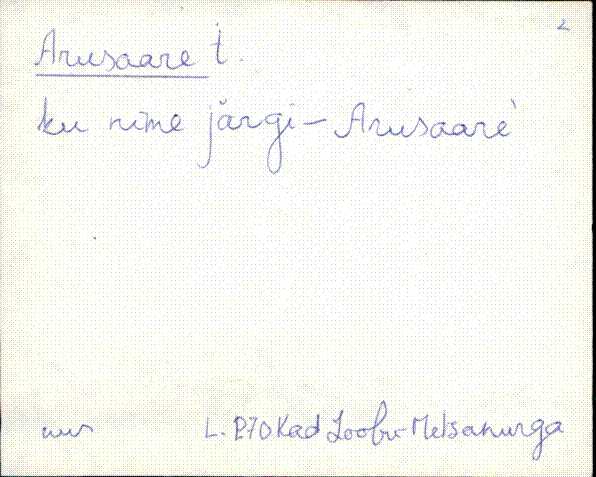 2
Arusaare t.
ku nime järgi – Arusaare`
L. P70 Kad Loobu-Metsanurga